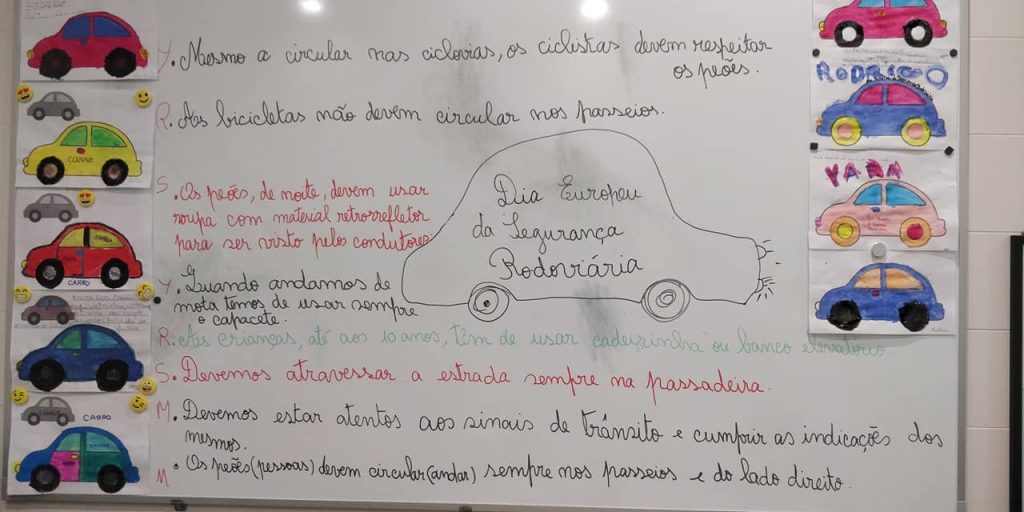 Y. Mesmo a circular nas ciclovias, os ciclistas devem respeitar
os peões.
R. As bicicletas não devem circular nos passeios.
S. Os peões, de noite, devem usar
roupa com material retrorrefletor
para ser visto pelo condutores.
Dia Europeu
da Segurança
Rodoviária
Y. Quando andamos de
mota temos de usar sempre
o capacete.
R. As crianças, até aos 10 anos, têm de usar cadeirinha ou banco elevatório.
S. Devemos atravessar a estrada sempre na passadeira.
M. Devemos estar atentos aos sinais de trânsito e cumprir as indicações dos
mesmos.
M. Os peões (pessoas) devem circular (andar) sempre nos passeios e do lado direito.
CARRO
CARRO
CARRO
RODRIGO
YARA